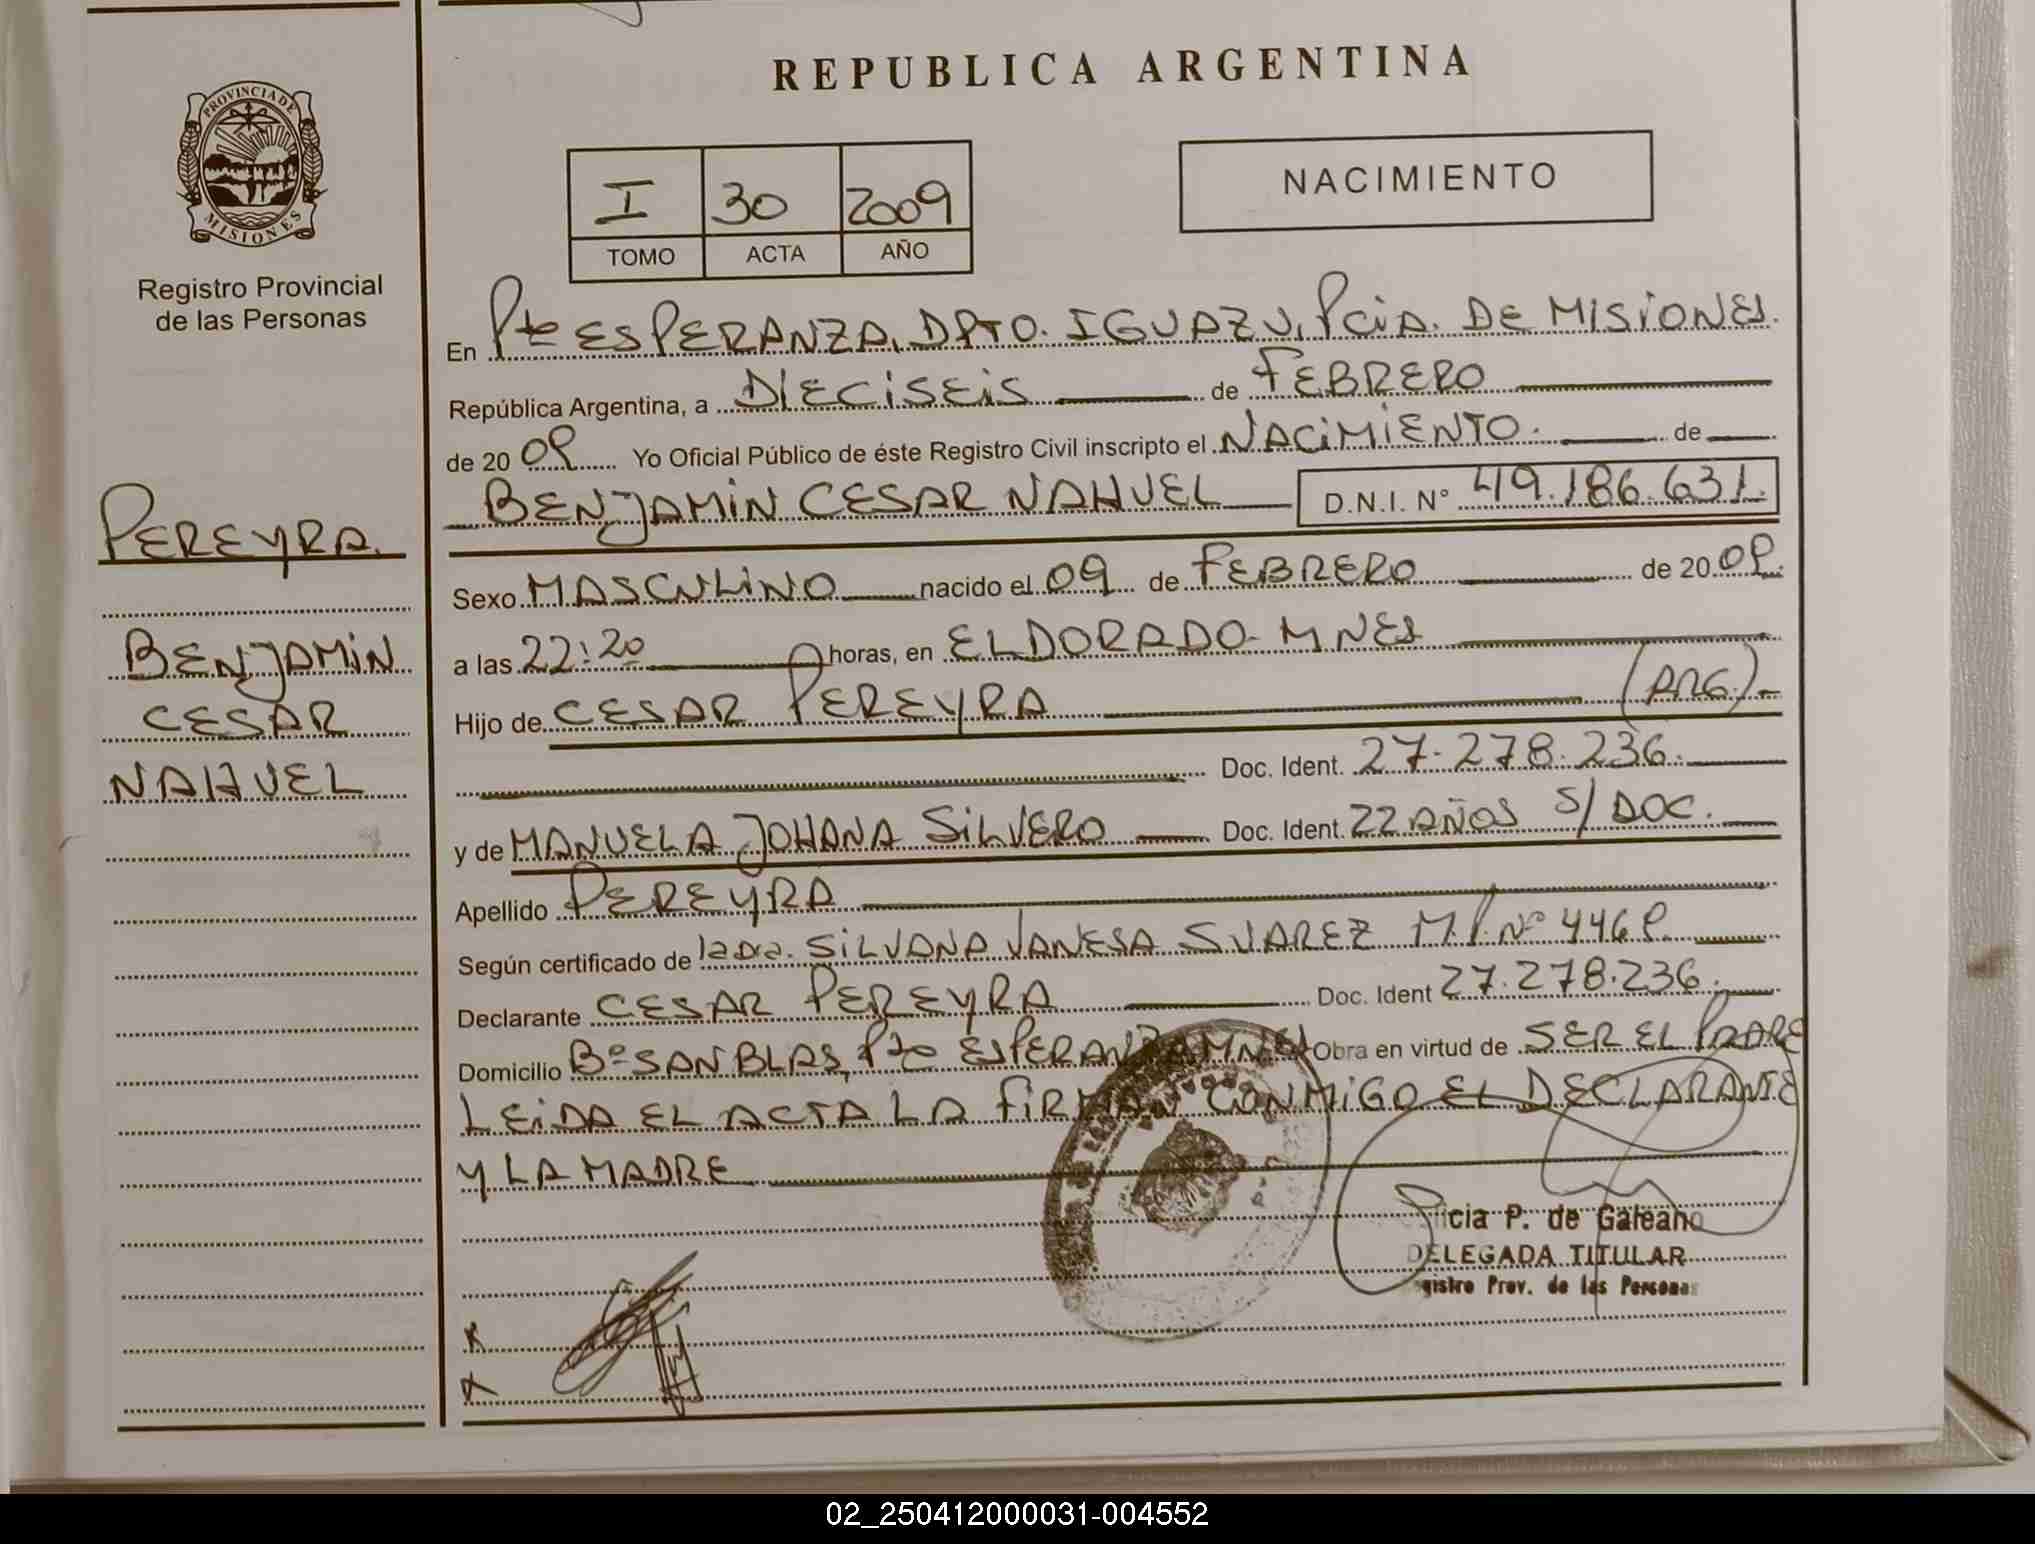 REPUBLICA ARGENTINA
PROVINCIA DE
MISIONES
Registro Provincial
de las Personas
I 30 2009
TOMO ACTA AÑO
NACIMIENTO
En Pto ESPERANZA, DPTO. IGUAZU, PCIA. DE MISIONES.
República Argentina, a DIECISEIS de FEBRERO
de 2009 Yo Oficial Público de éste Registro Civil inscripto el NACIMIENTO. de
BENJAMIN CESAR NAHUEL D.N.I. N° 49.186.631.
PEREYRA.
BENJAMIN
CESAR
NAHUEL
Sexo MASCULINO nacido el 09 de FEBRERO de 2009.
a las 22:20 horas, en ELDORADO-MNES
Hijo de CESAR PEREYRA (ARG.)
Doc. Ident. 27.278.236.
y de MANUELA JOHANA SILVERO Doc. Ident. 22 AÑOS S/DOC.
Apellido PEREYRA
Según certificado de la Dra. SILVANA VANESA SUAREZ M.P. N° 4469.
Declarante CESAR PEREYRA Doc. Ident 27.278.236.
Domicilio B° SAN BLAS, Pto ESPERANZA MNES Obra en virtud de SER EL PADRE
LEIDA EL ACTA LA FIRMAN CONMIGO EL DECLARANTE
Y LA MADRE
P. de Galeano
DELEGADA TITULAR
Prov. de las Personas
X
X
02_250412000031-004552